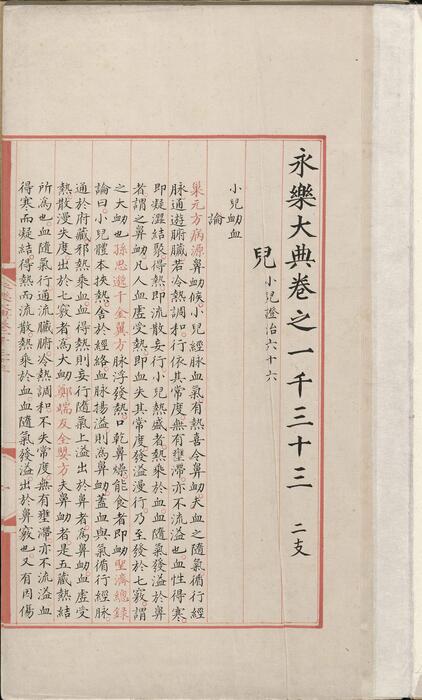 永樂大典卷之一千三十三 二支
兒 小兒證治六十六
小兒衄血
論
巢元方病源鼻衄候小兒經脉血氣有熱喜令鼻衄夫血之隨氣循行經
脉通遊腑臟若冷熱調和行依其常度無有壅滯亦不流溢也血性得寒
即凝澀結聚得熱即流散妄行小兒熱盛者熱乘於血血隨氣發溢於鼻
者謂之鼻衄凡人血虛受熱即血失其常度發溢漫行乃至發於七竅謂
之大衄也孫思邈千金翼方脉浮發熱口乾鼻燥能食者即衄聖濟總錄
論曰小兒體本挾熱舍於經絡血脉揚溢則為鼻衄蓋血與氣循行經脉
通於府藏邪熱乘血血得熱則妄行隨氣上溢出於鼻者為鼻衄血虛受
熱散漫失度出於七竅者為大衄鄭端友全嬰方夫鼻衄者是五藏熱結
所為也血隨氣行通流臟腑冷熱調和不失常度無有壅滯亦不流溢血
得寒而凝結得熱而流散熱乘於血血隨氣發溢出於鼻竅也又有因傷